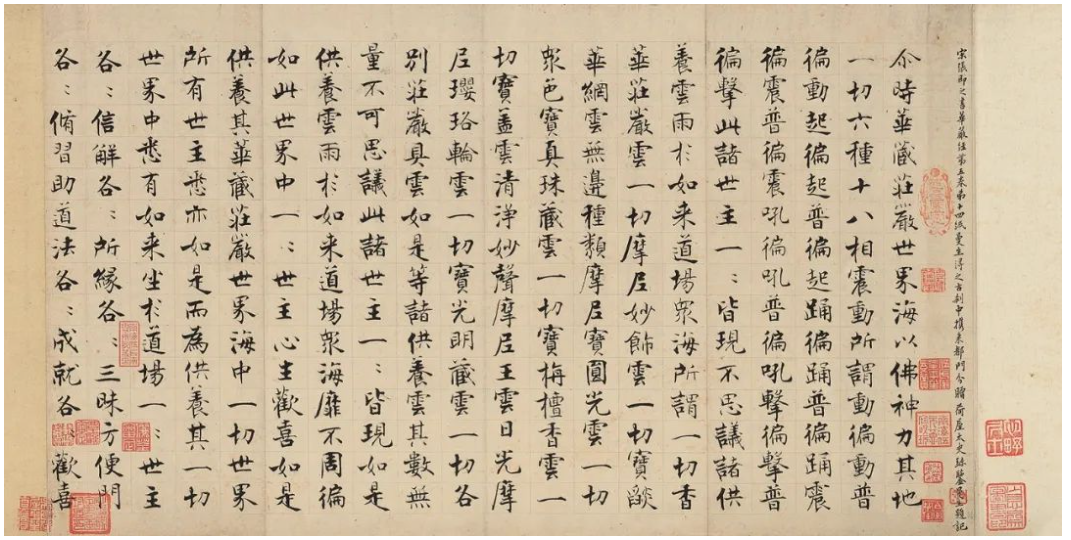 宋張即之書華嚴經第五卷第十四紙曼生得之古刹中携来都門分贈荷屋太史題記
尒時華藏莊嚴世界海以佛神力其地
一切六種十八相震動所謂動徧動普
徧動起徧起普徧起踊徧踊普徧踊震
徧震普徧震吼徧吼普徧吼擊徧擊普
徧擊此諸世主一〻皆現不思議諸供
養雲雨扵如来道場衆海所謂一切香
華莊嚴雲一切摩尼妙飾雲一切寶燄
華網雲無邊種類摩尼寶圓光雲一切
衆色寶真珠藏雲一切寶栴檀香雲一
切寶盖雲清淨妙聲摩尼王雲日光摩
尼瓔珞輪雲一切寶光明藏雲一切各
別莊嚴具雲如是等諸供養雲其數無
量不可思議此諸世主一〻皆現如是
供養雲雨扵如来道場衆海靡不周徧
如此世界中一〻世主心生歡喜如是
供養其華藏莊嚴世界海中一切世界
所有世主悉亦如是而為供養其一切
世界中悉有如来坐扵道場一〻世主
各〻信解各〻所縁各〻三昧方便門
各〻脩習助道法各〻成就各〻歡喜